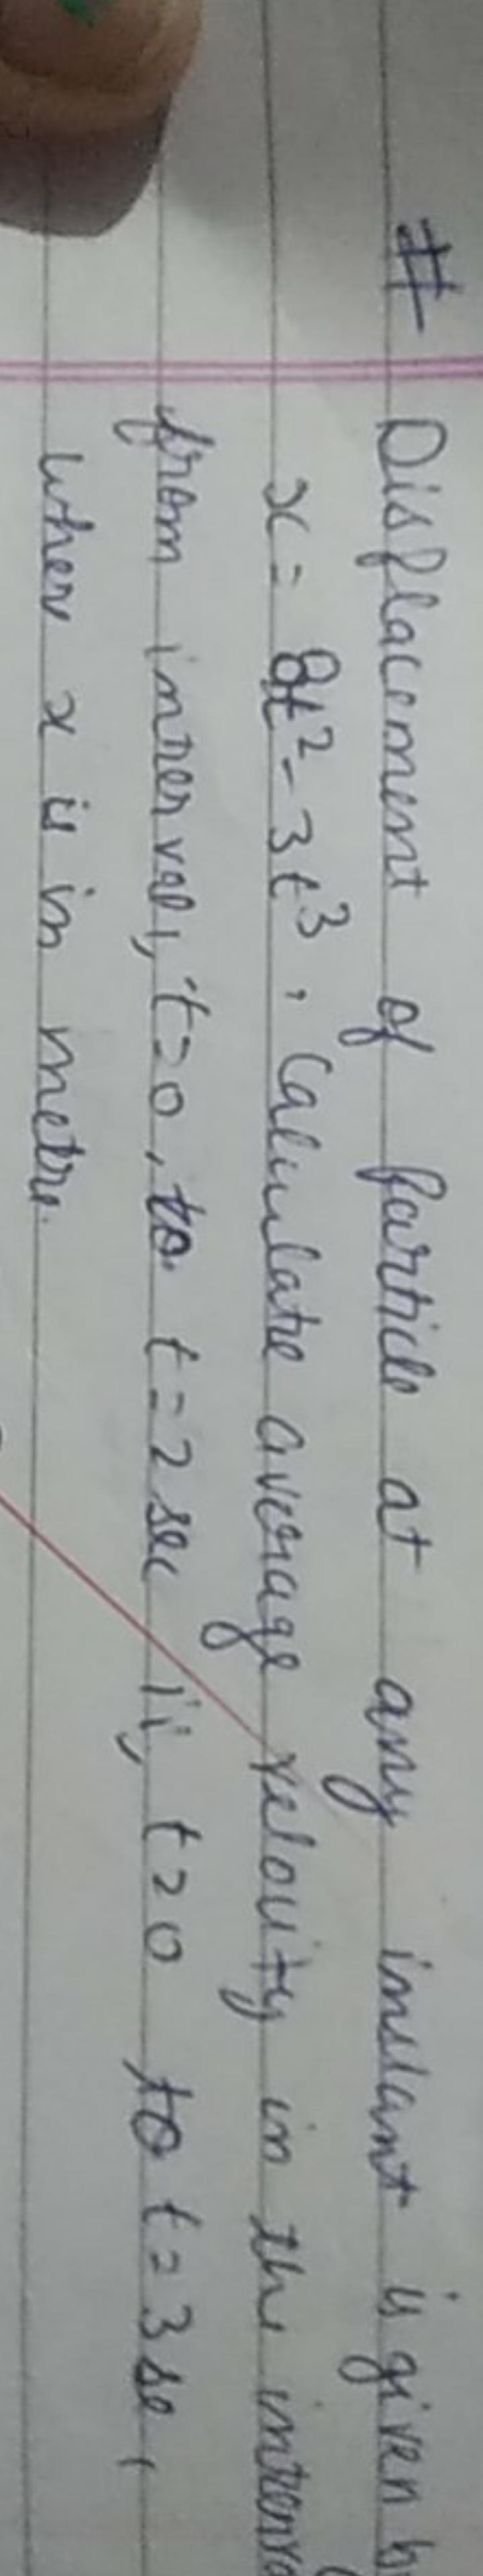 # Displacement of particle at any instant is given b
x = 8t² - 3t³. Calculate average velocity in the interva
from interval, t=0, to t=2 sec ii, t=0 to t=3 se,
where x is in metre.